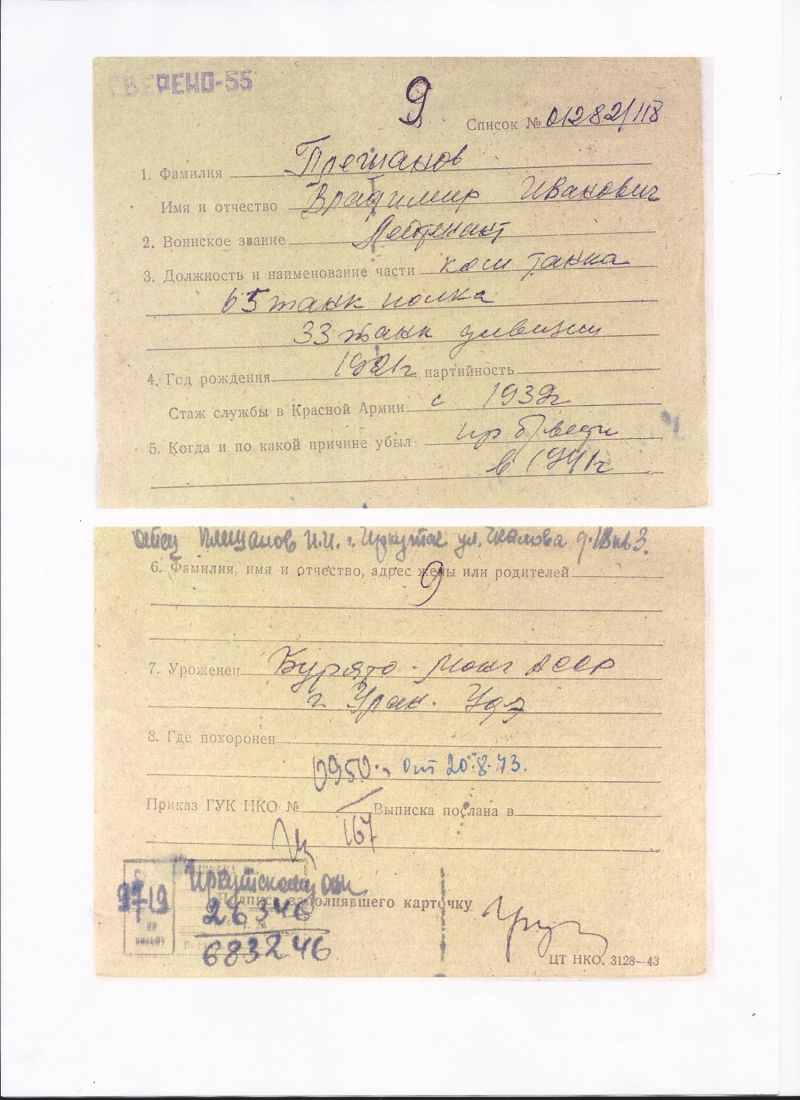 СВЕРЕНО-55
9
Список № 01282/118
1. Фамилия Плешанов
Имя и отчество Владимир Иванович
2. Воинское звание Лейтенант
3. Должность и наименование части ком танка
65 танк полка
33 танк дивизии
4. Год рождения 1921г партийность
Стаж службы в Красной Армии с 1939г
5. Когда и по какой причине убыл пр б/вести
в 1941г
отец Плешанов И.И. г. Иркутск ул. Чкалова д. 18 кв 3.
6. Фамилия, имя и отчество, адрес жены или родителей
9
7. Уроженец Бурято-Монг АССР
г. Улан-Удэ
8. Где похоронен
0950 от 20.8.43.
Приказ ГУК НКО № Выписка послана в
167
Иркутскому
9719 26346
Подпись заполнявшего карточку
683246
ЦТ НКО. 3128—43